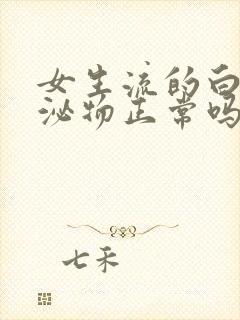 女生流的白
泌物正常吗
七禾